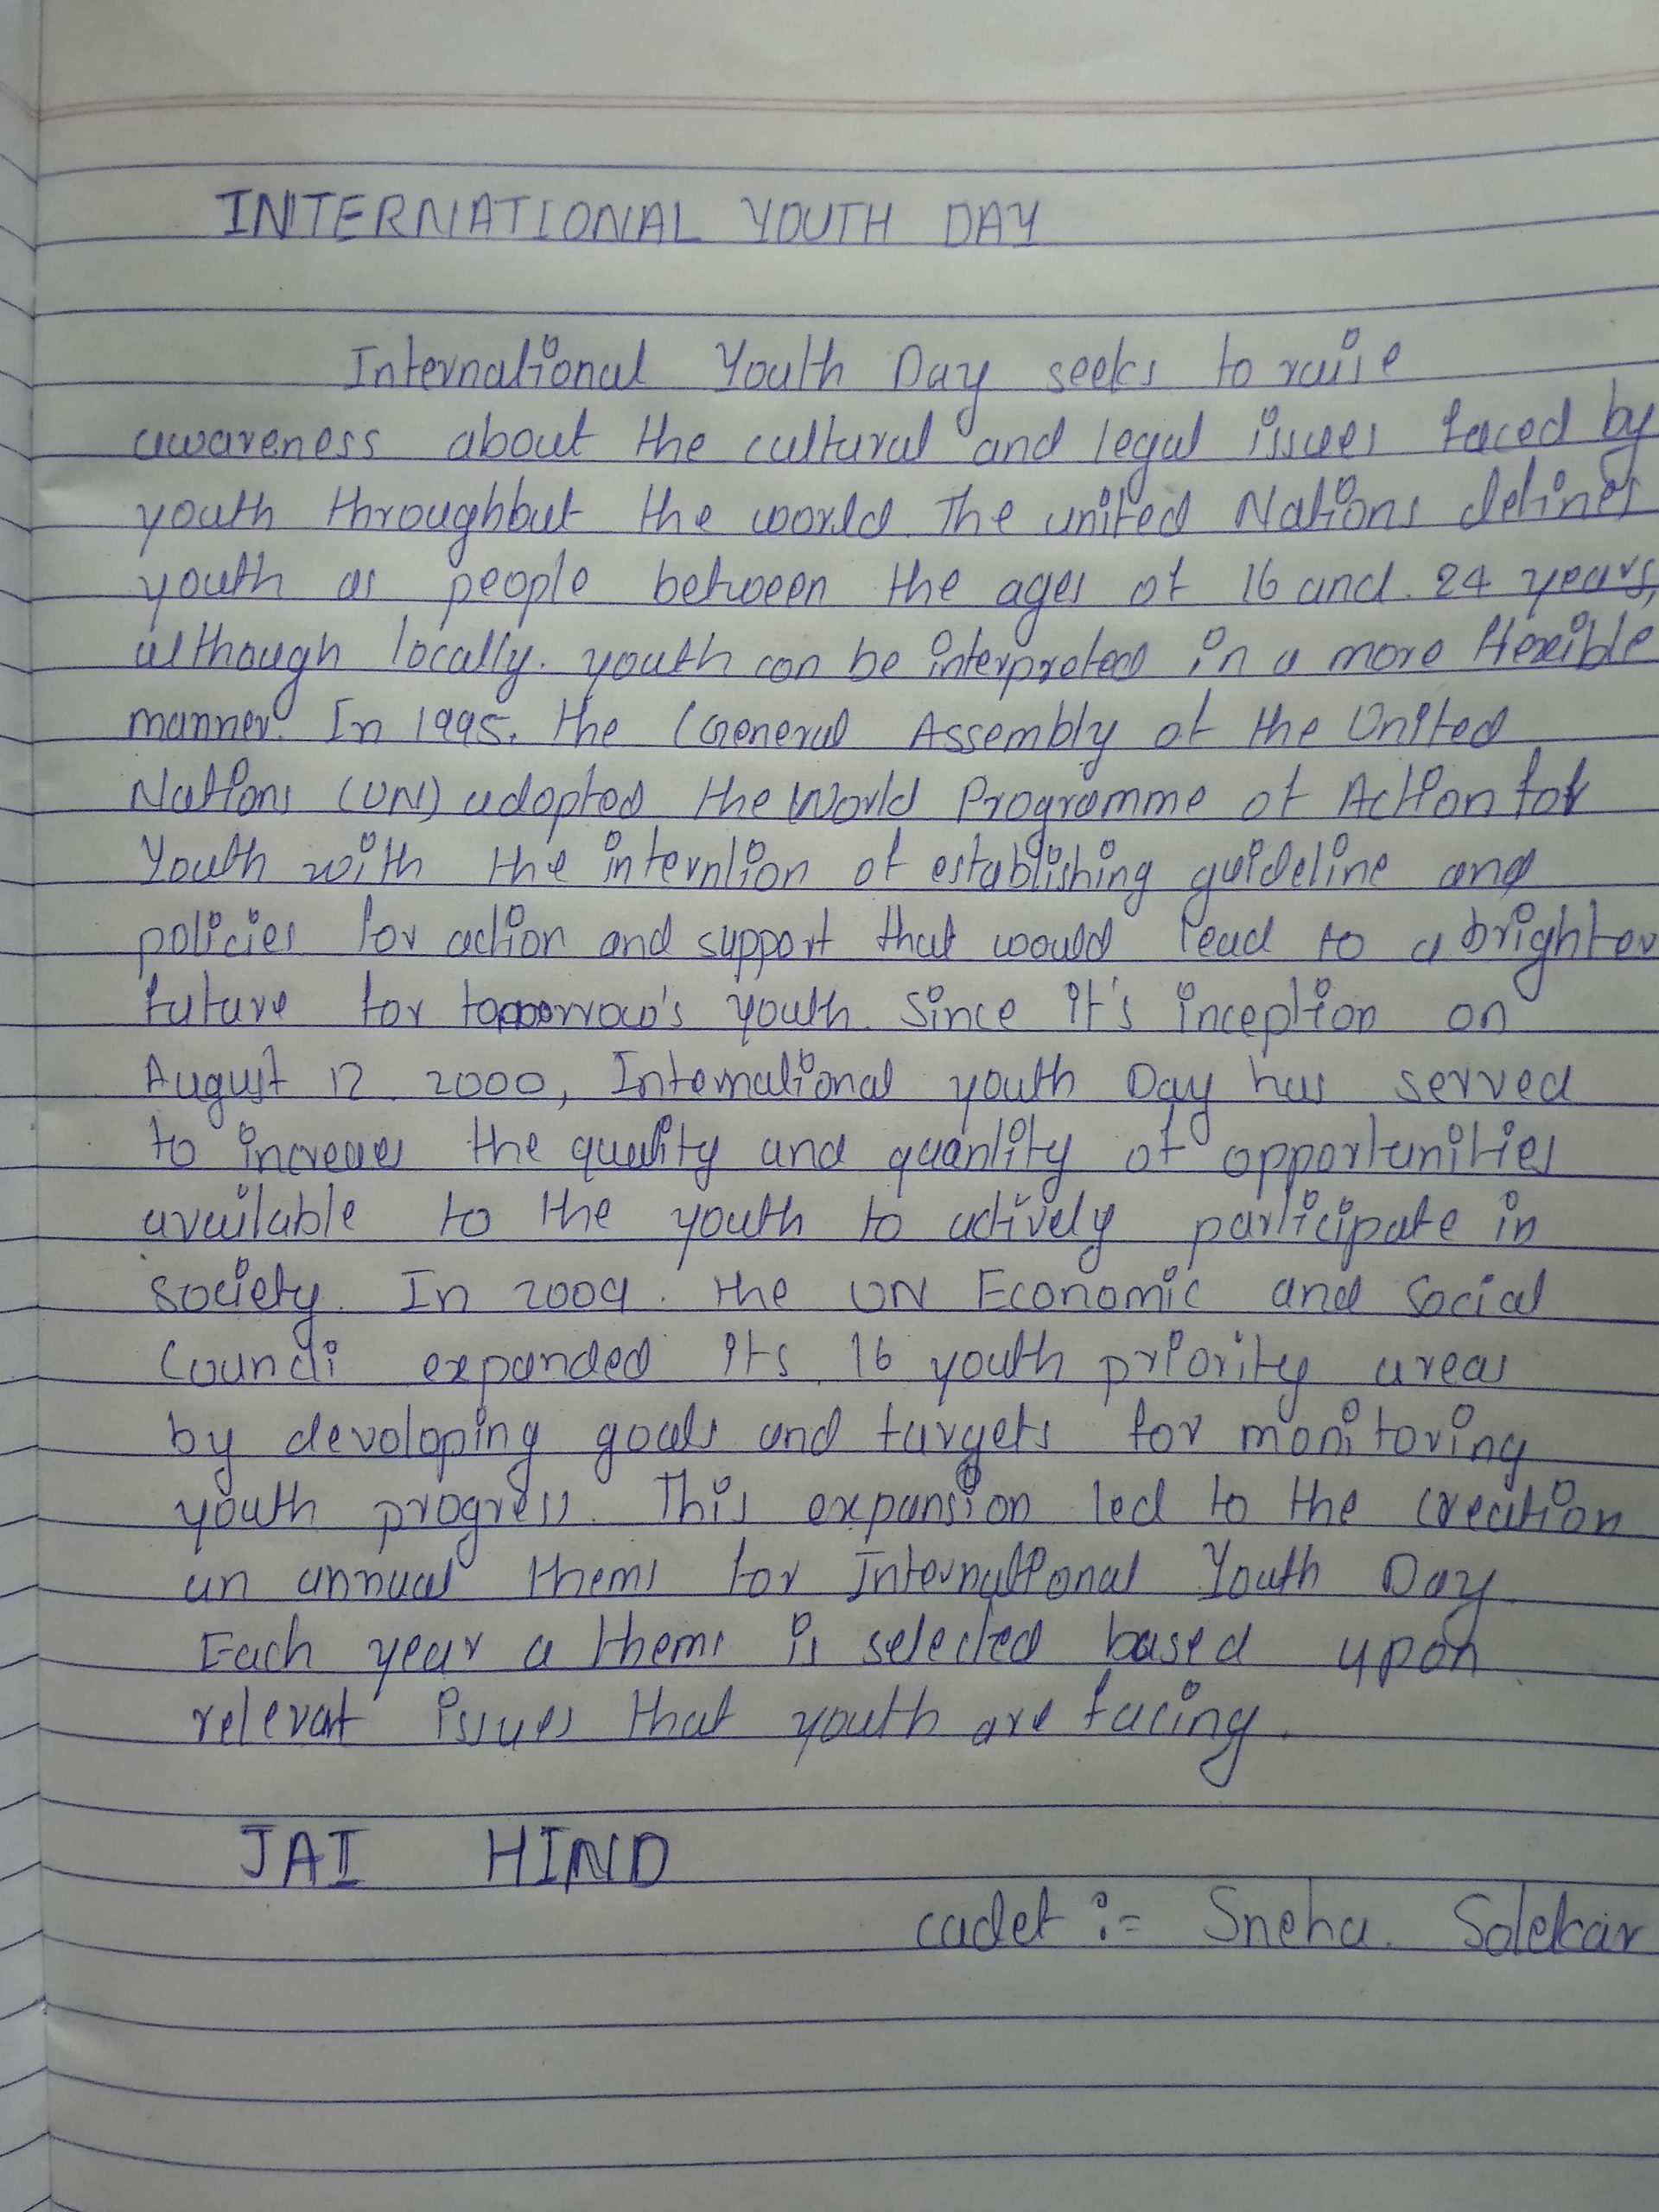 INTERNATIONAL YOUTH DAY
International Youth Day seeks to raise
awareness about the cultural and legal issues faced by
youth throughout the world. The united Nations defines
youth as people between the ages of 16 and. 24 years,
although locally. youth can be interpreted in a more flexible
manner. In 1995. the General Assembly of the United
Nations (UN) adopted the World Programme of Action for
Youth with the interntion of establishing guideline and
policies for action and support that would lead to a brighter
future for tomorrow's youth. Since it's inception on
August 12. 2000, International youth Day has served
to increaes the quality and quantity of opportunities
available to the youth to actively participate in
society. In 2009. the UN Economic and Social
Counci expanded its. 16 youth priority areas
by devoloping goals and targets for monitoring
youth progress. This expansion led to the creation
an annual thems for International Youth Day.
Each year a thems is selected based upon
relevat issues that youth are facing.
JAI HIND
cadet :- Sneha. Solekar